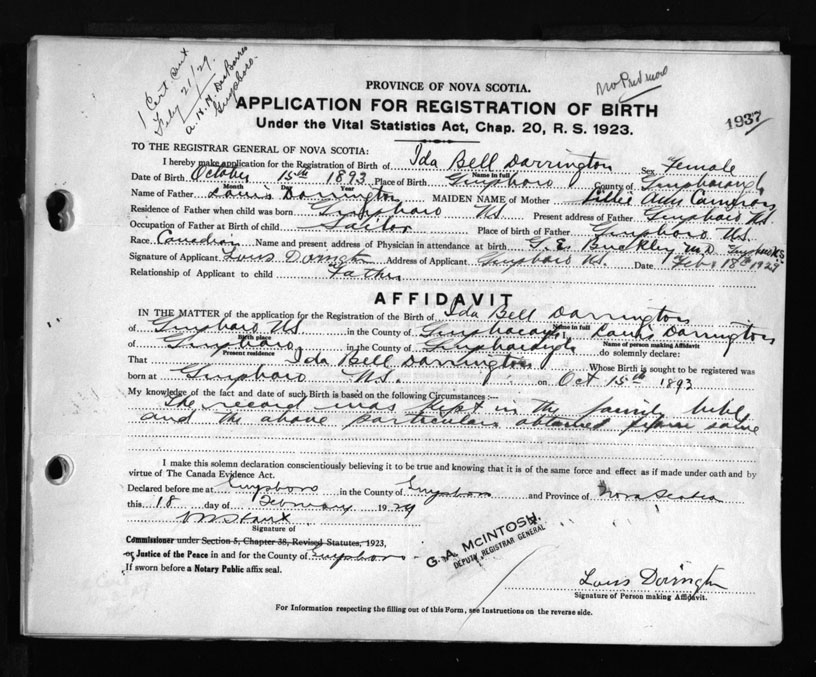 1 Cert sent
Feby 21/29.
A. W. W. DesBarres
Guysboro.
No Prev. Record
PROVINCE OF NOVA SCOTIA.
1937
APPLICATION FOR REGISTRATION OF BIRTH
Under the Vital Statistics Act, Chap. 20, R. S. 1923.
TO THE REGISTRAR GENERAL OF NOVA SCOTIA:
I hereby make application for the Registration of Birth of Ida Bell Darrington Sex Female
Name in full
Date of Birth October 15th 1893 Place of Birth Guysboro County of Guysborough
Month Day Year
Name of Father Louis Darrington MAIDEN NAME of Mother Lillie Ann Cameron
Residence of Father when child was born Guysboro NS Present address of Father Guysboro NS
Occupation of Father at Birth of child Sailor Place of birth of Father Guysboro NS.
Race Canadian Name and present address of Physician in attendance at birth G. E. Buckley M.D Guysboro N.S
Signature of Applicant Louis Dorington Address of Applicant Guysboro NS. Date Feb 18th 1929
Relationship of Applicant to child Father
AFFIDAVIT
IN THE MATTER of the application for the Registration of the Birth of Ida Bell Darrington
Name in full
of Guysboro NS in the County of Guysborough Louis Darrington
Birth place
Name of person making Affidavit
of Guysboro in the County of Guysborough do solemnly declare:
Present residence
That Ida Bell Darrington Whose Birth is sought to be registered was
born at Guysboro NS. on Oct 15th 1893
My knowledge of the fact and date of such Birth is based on the following Circumstances :—
The record was kept in the family bible
and the above particulars obtained from same
I make this solemn declaration conscientiously believing it to be true and knowing that it is of the same force and effect as if made under oath and by
virtue of The Canada Evidence Act.
Declared before me at Guysboro in the County of Guysboro and Province of Nova Scotia
this 18 day of February 1929
Signature of
Commissioner under Section 5, Chapter 38, Revised Statutes, 1923,
or Justice of the Peace in and for the County of Guysboro
If sworn before a Notary Public affix seal.
G. A. MCINTOSH,
DEPUTY REGISTRAR GENERAL
Louis Dorington
Signature of Person making Affidavit.
For Information respecting the filling out of this Form, see Instructions on the reverse side.